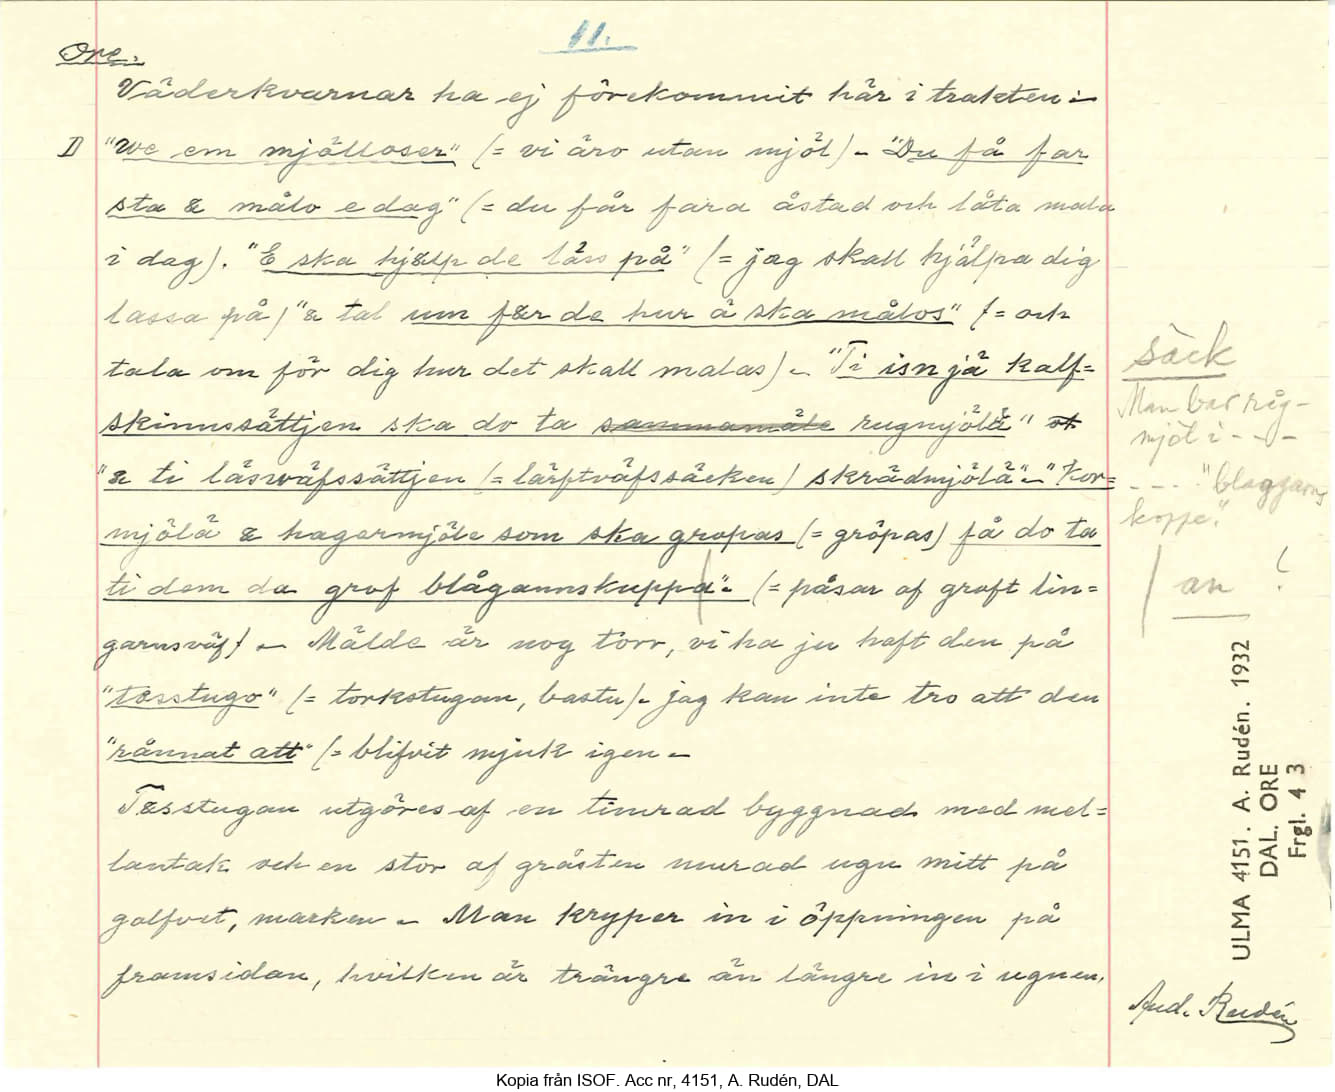 11.
Ore.
Väderkvarnar ha ej förekommit här i trakten.–
D "We em mjälloser" (= vi äro utan mjöl) – "Du få far
sta & målo e dag" (= du får fara åstad och låta mala
i dag). "E ska hjælp de låss på" (= jag skall hjälpa dig
lassa på) "& tal um før de hur å ska målos" (= och
tala om för dig hur det skall malas) – "Ti isn jä kalf=
skinnssättjen ska do ta sammamåle rugmjölä"
"& ti låswäfssättjen (= lärftväfssäcken) skrädmjölä" – "Kor=
mjölä & hagormjöle som ska gropas (= gröpas) få do ta
ti dem da grof blågannskuppa" – (= påsar af groft lin=
garnsväf) – Mälde är nog torr, vi ha ju haft den på
"tosstugo" (= torkstugan, bastu) – jag kan inte tro att den
"rånnat att" (= blifvit mjuk igen –
Tosstugan utgöres af en timrad byggnad med mel=
lantak och en stor af gråsten murad ugn mitt på
golfvet, marken – Man kryper in i öppningen på
framsidan, hvilken är trängre än längre in i ugnen.
säck
Man bar råg-
mjöl i - - -
- - - - "blaggarns
koppe".
/ an !
ULMA 4151. A. Rudén. 1932
DAL. ORE
Frgl. 43
And. Rudén
Kopia från ISOF. Acc nr, 4151, A. Rudén, DAL